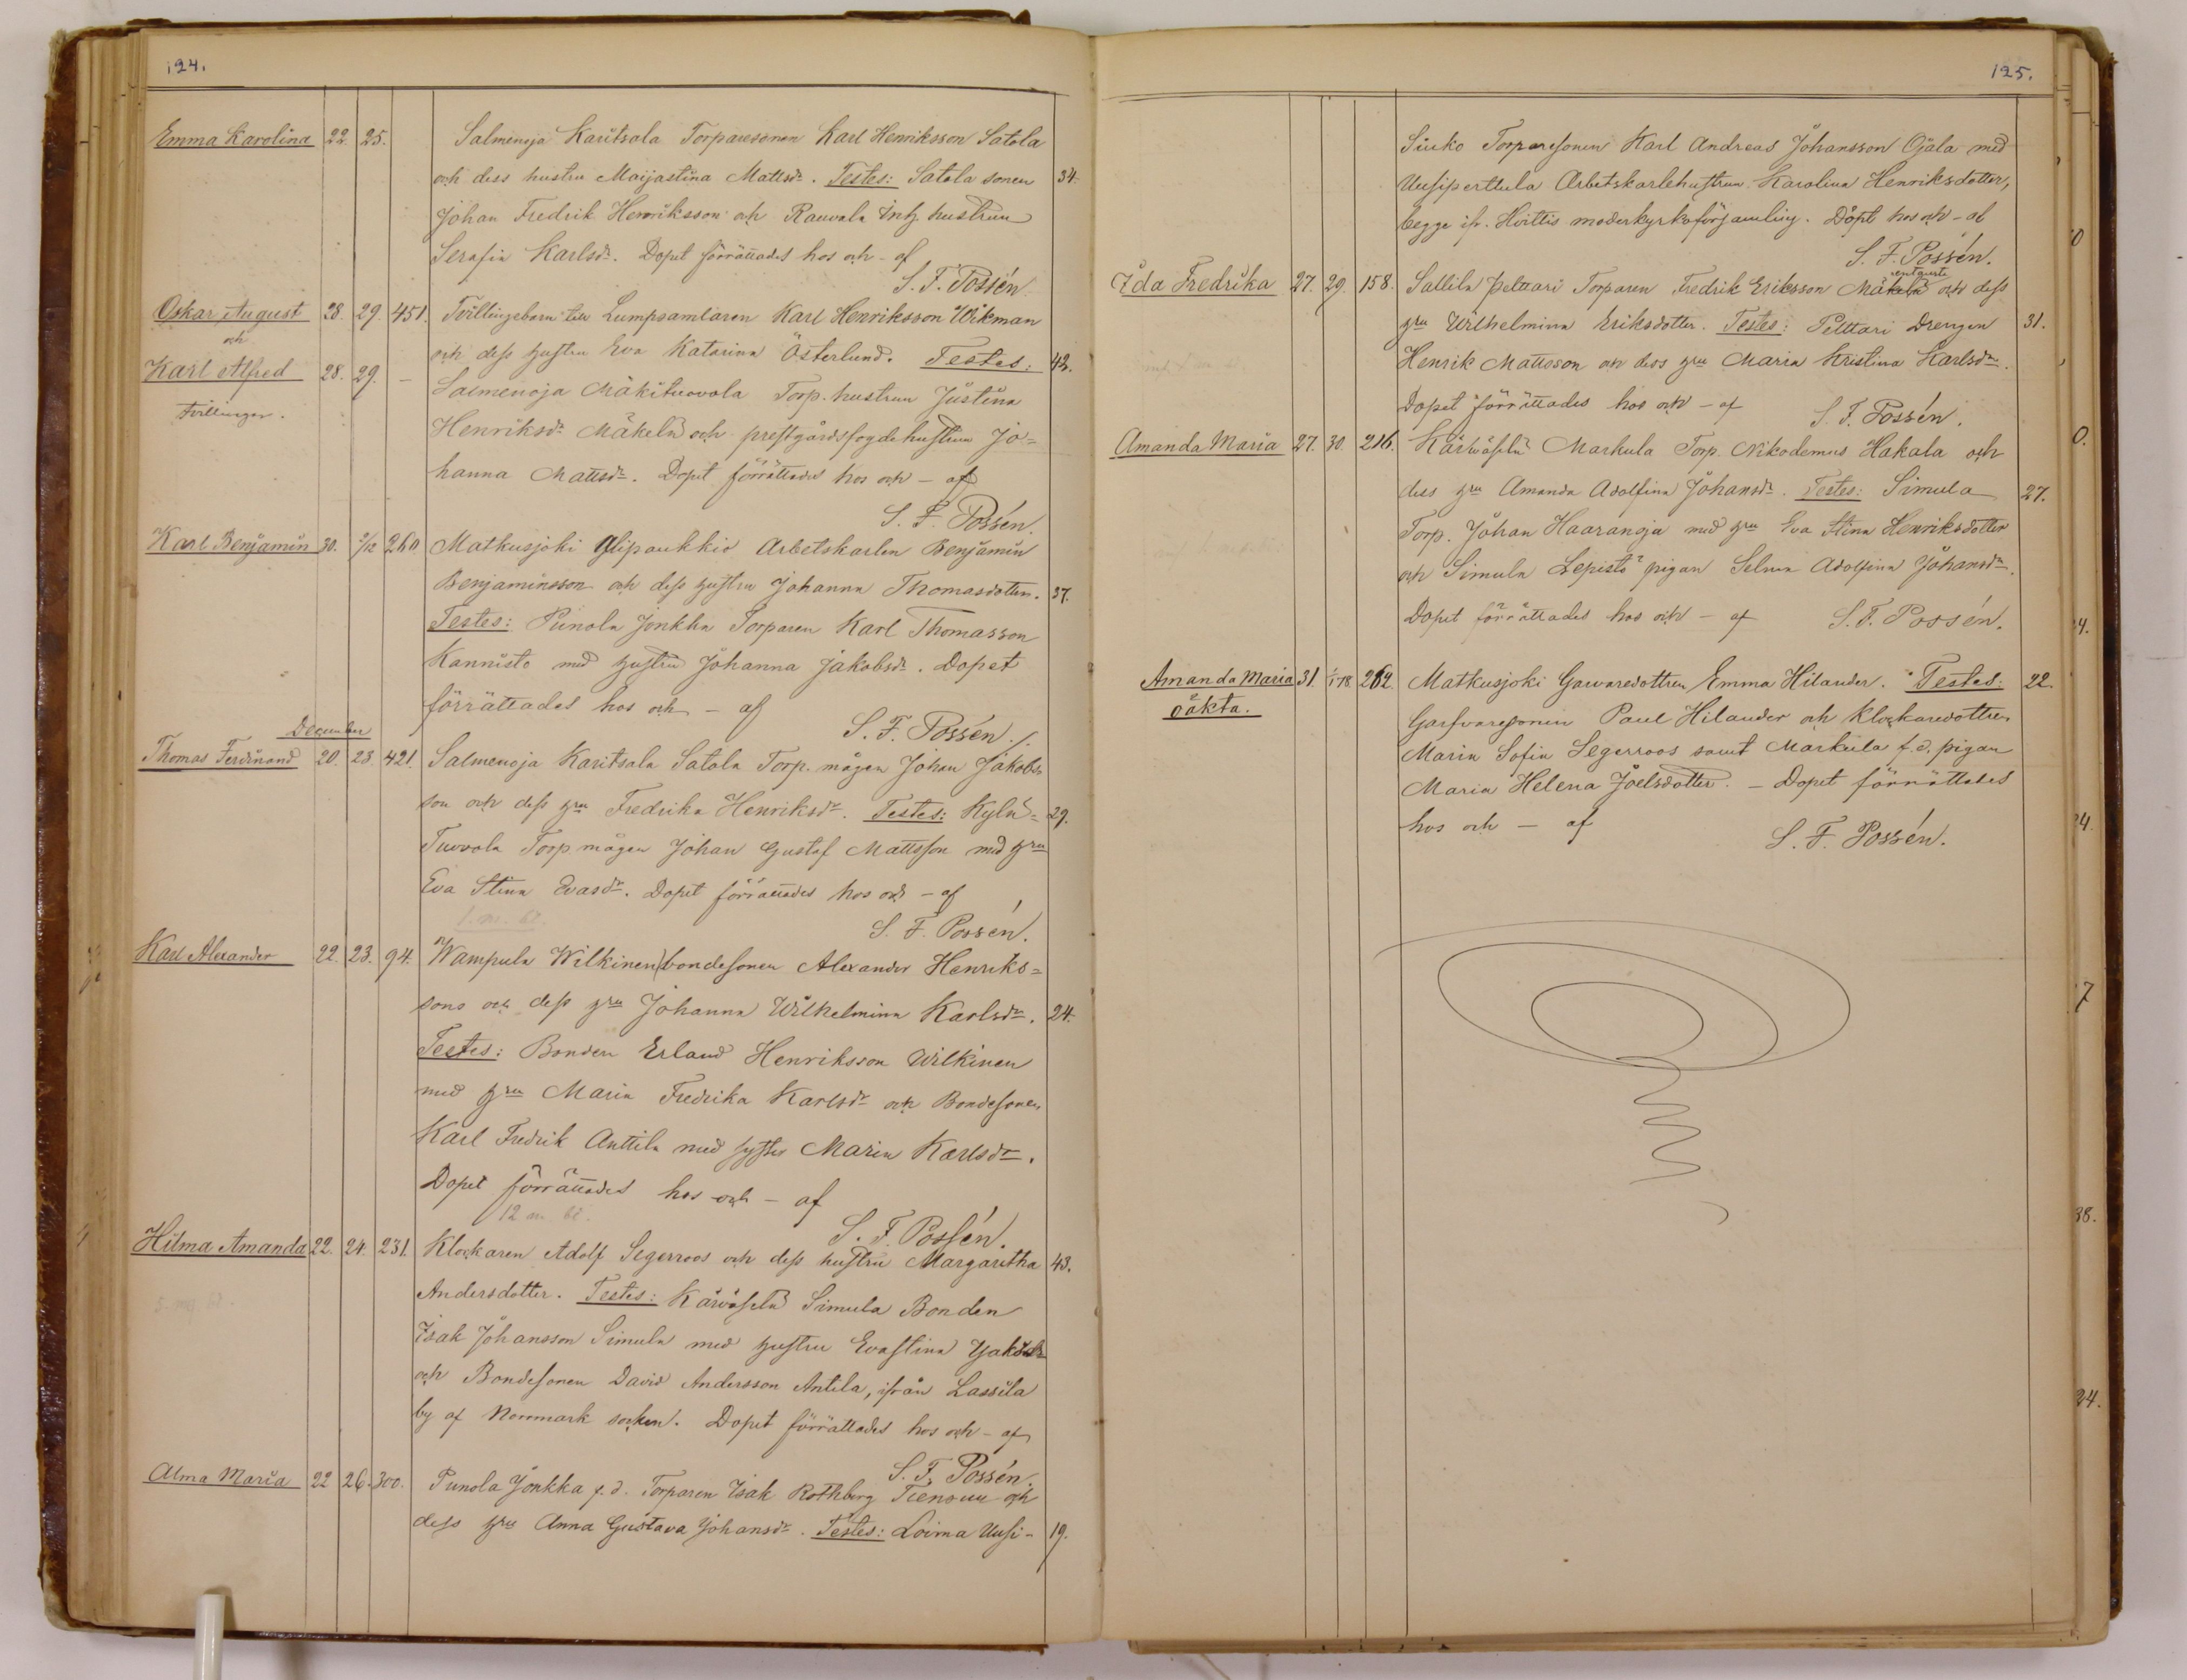 124.
Emma Karolina 22. 25. Salmenoja Karitsala Torparesonen Karl Henriksson Satola
och dess hustru Maijastina Mattsdr. Testes: Satola sonen 34.
Johan Fredrik Henriksson och Rauvola Inh. hustrun
Serafia Karlsdr. Dopet förrättades hos och – af
S. F. Possén.
Oskar August 28. 29. 451. Tvillingebarn till Lumpsamlaren Karl Henriksson Wikman
och
och dess hustru Eva Katarina Österlund. Testes: 42.
Karl Alfred 28. 29. –
Salmenoja Mäkituovola Torp. hustrun Justina
tvillingar.
Henriksdr Mäkelä och prestgårdsfogdehustrun Jo-
hanna Mattsdr. Dopet förrättades hos och – af
S. F. Possén.
Karl Benjamin 30. 2/12 260. Matkusjoki Ylipaukkio Arbetskarlen Benjamin
Benjaminsson och dess hustru Johanna Thomasdotter. 37.
Testes: Punola Jonkka Torparen Karl Thomasson
Kannisto med hustru Johanna Jakobsdr. Dopet
förrättades hos och – af
S. F. Possén./.
December
Thomas Ferdinand 20. 23. 421. Salmenoja Karitsala Satola Torp. mågen Johan Jakobs
son och dess hru Fredrika Henriksdr. Testes: Kylä- 29.
Tuovola Torp mågen Johan Gustaf Mattsson med hru
Eva Stina Evasdr. Dopet förrättades hos och – af
S. F. Possén.
Karl Alexander 22. 23. 94. Wampula Wilkinen bondesonen Alexander Henriks=
sons och dess hru Johanna Wilhelmina Karlsdr. 24.
Testes: Bonden Erland Henriksson Wilkinen
med hru Maria Fredrika Karlsdr och Bondesonen
Karl Fredrik Anttila med syster Maria Karlsdr.
Dopet förrättades hos och – af
12 m.
S. F. Possén.
Hilma Amanda 22. 24. 231. Klockaren Adolf Segerroos och dess hustru Margaritha 43.
Andersdotter. Testes: Karwäselä Simula Bonden
Isak Johansson Simula med hustru Evastina
och Bondesonen David Andersson Antila, ifrån Lassila
by af Norrmark socken. Dopet förrättades hos och – af
S. F. Possén.
Alma Maria 22 26. 300. Punola Jonkka f. d. Torparen Isak Rothberg Tiensuu och
dess hru Anna Gustava Johansdr. Testes: Loima Uusi- 19.
125.
Siuko Torparesonen Karl Andreas Johansson Ojala med
Uusiperttula Arbetskarlehustrun Karolina Henriksdotter,
begge ifr. Hvittis moderkyrkoförsamling. Döpt hos och – af
S. F. Possén.
Ida Fredrika 27. 29. 158. Sallila Peltari Torparen Fredrik Eriksson Mäkelä och dess
hru Wilhelmina Eriksdotter. Testes: Pelttari Drengen 31.
Henrik Mattsson och dess hru Maria Kristina Karlsdr.
Dopet förrättades hos och – af
S. F. Possén.
Amanda Maria 27. 30. 216. Karwäselä Markula Torp. Nikodemus Hakala och
dess hru Amanda Adolfina Johansdr. Testes: Simula 27.
Torp. Johan Haaranoja med hru Eva Stina Henriksdotter
och Simula Lepistö pigan Selma Adolfina Johansdr.
Dopet förrättades hos och – af S. F. Possén.
Amanda Maria 31. 1/1 78 262. Matkusjoki Garvaredottren Emma Hilander. Testes: 22.
oäkta.
Garfvaresonen Paul Hilander och Klockaredottren
Maria Sofia Segerroos samt Markula f. d. pigan
Maria Helena Joelsdotter. – Dopet förrättades
hos och – af
S. F. Possén.